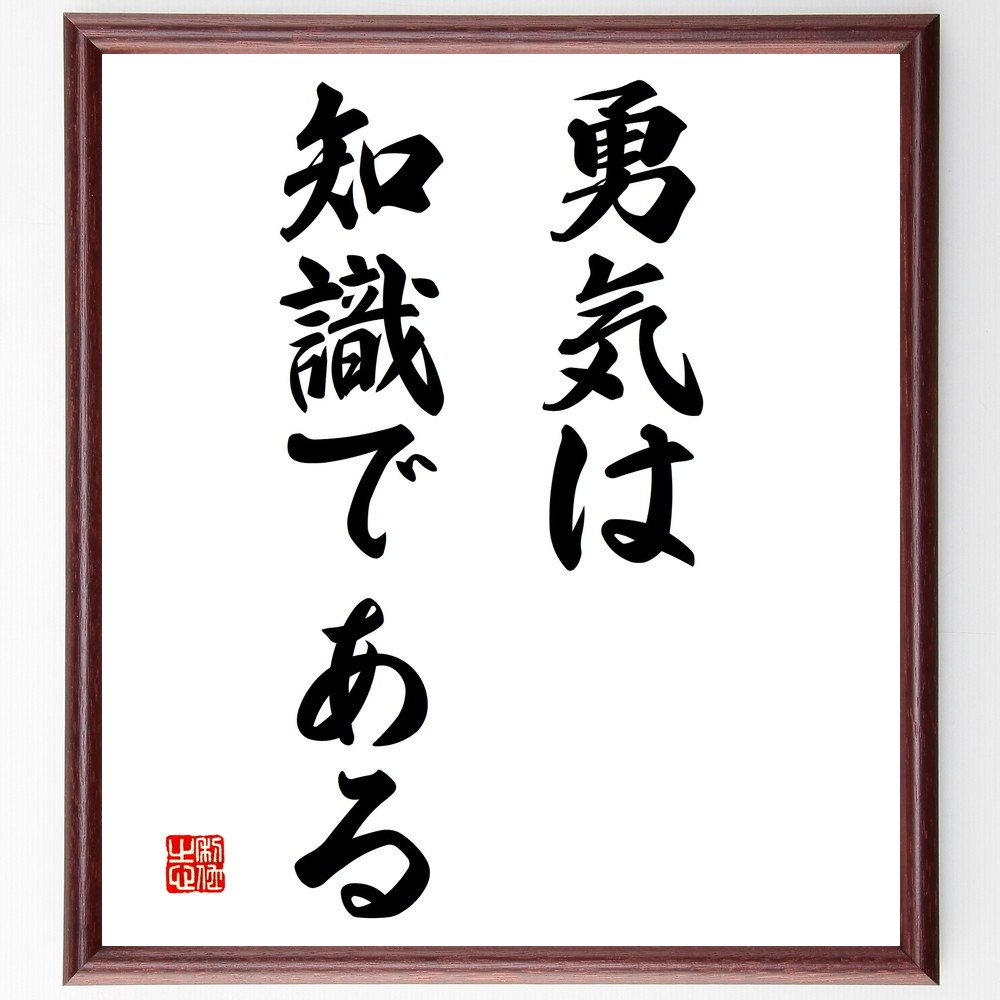 勇気は
知識である